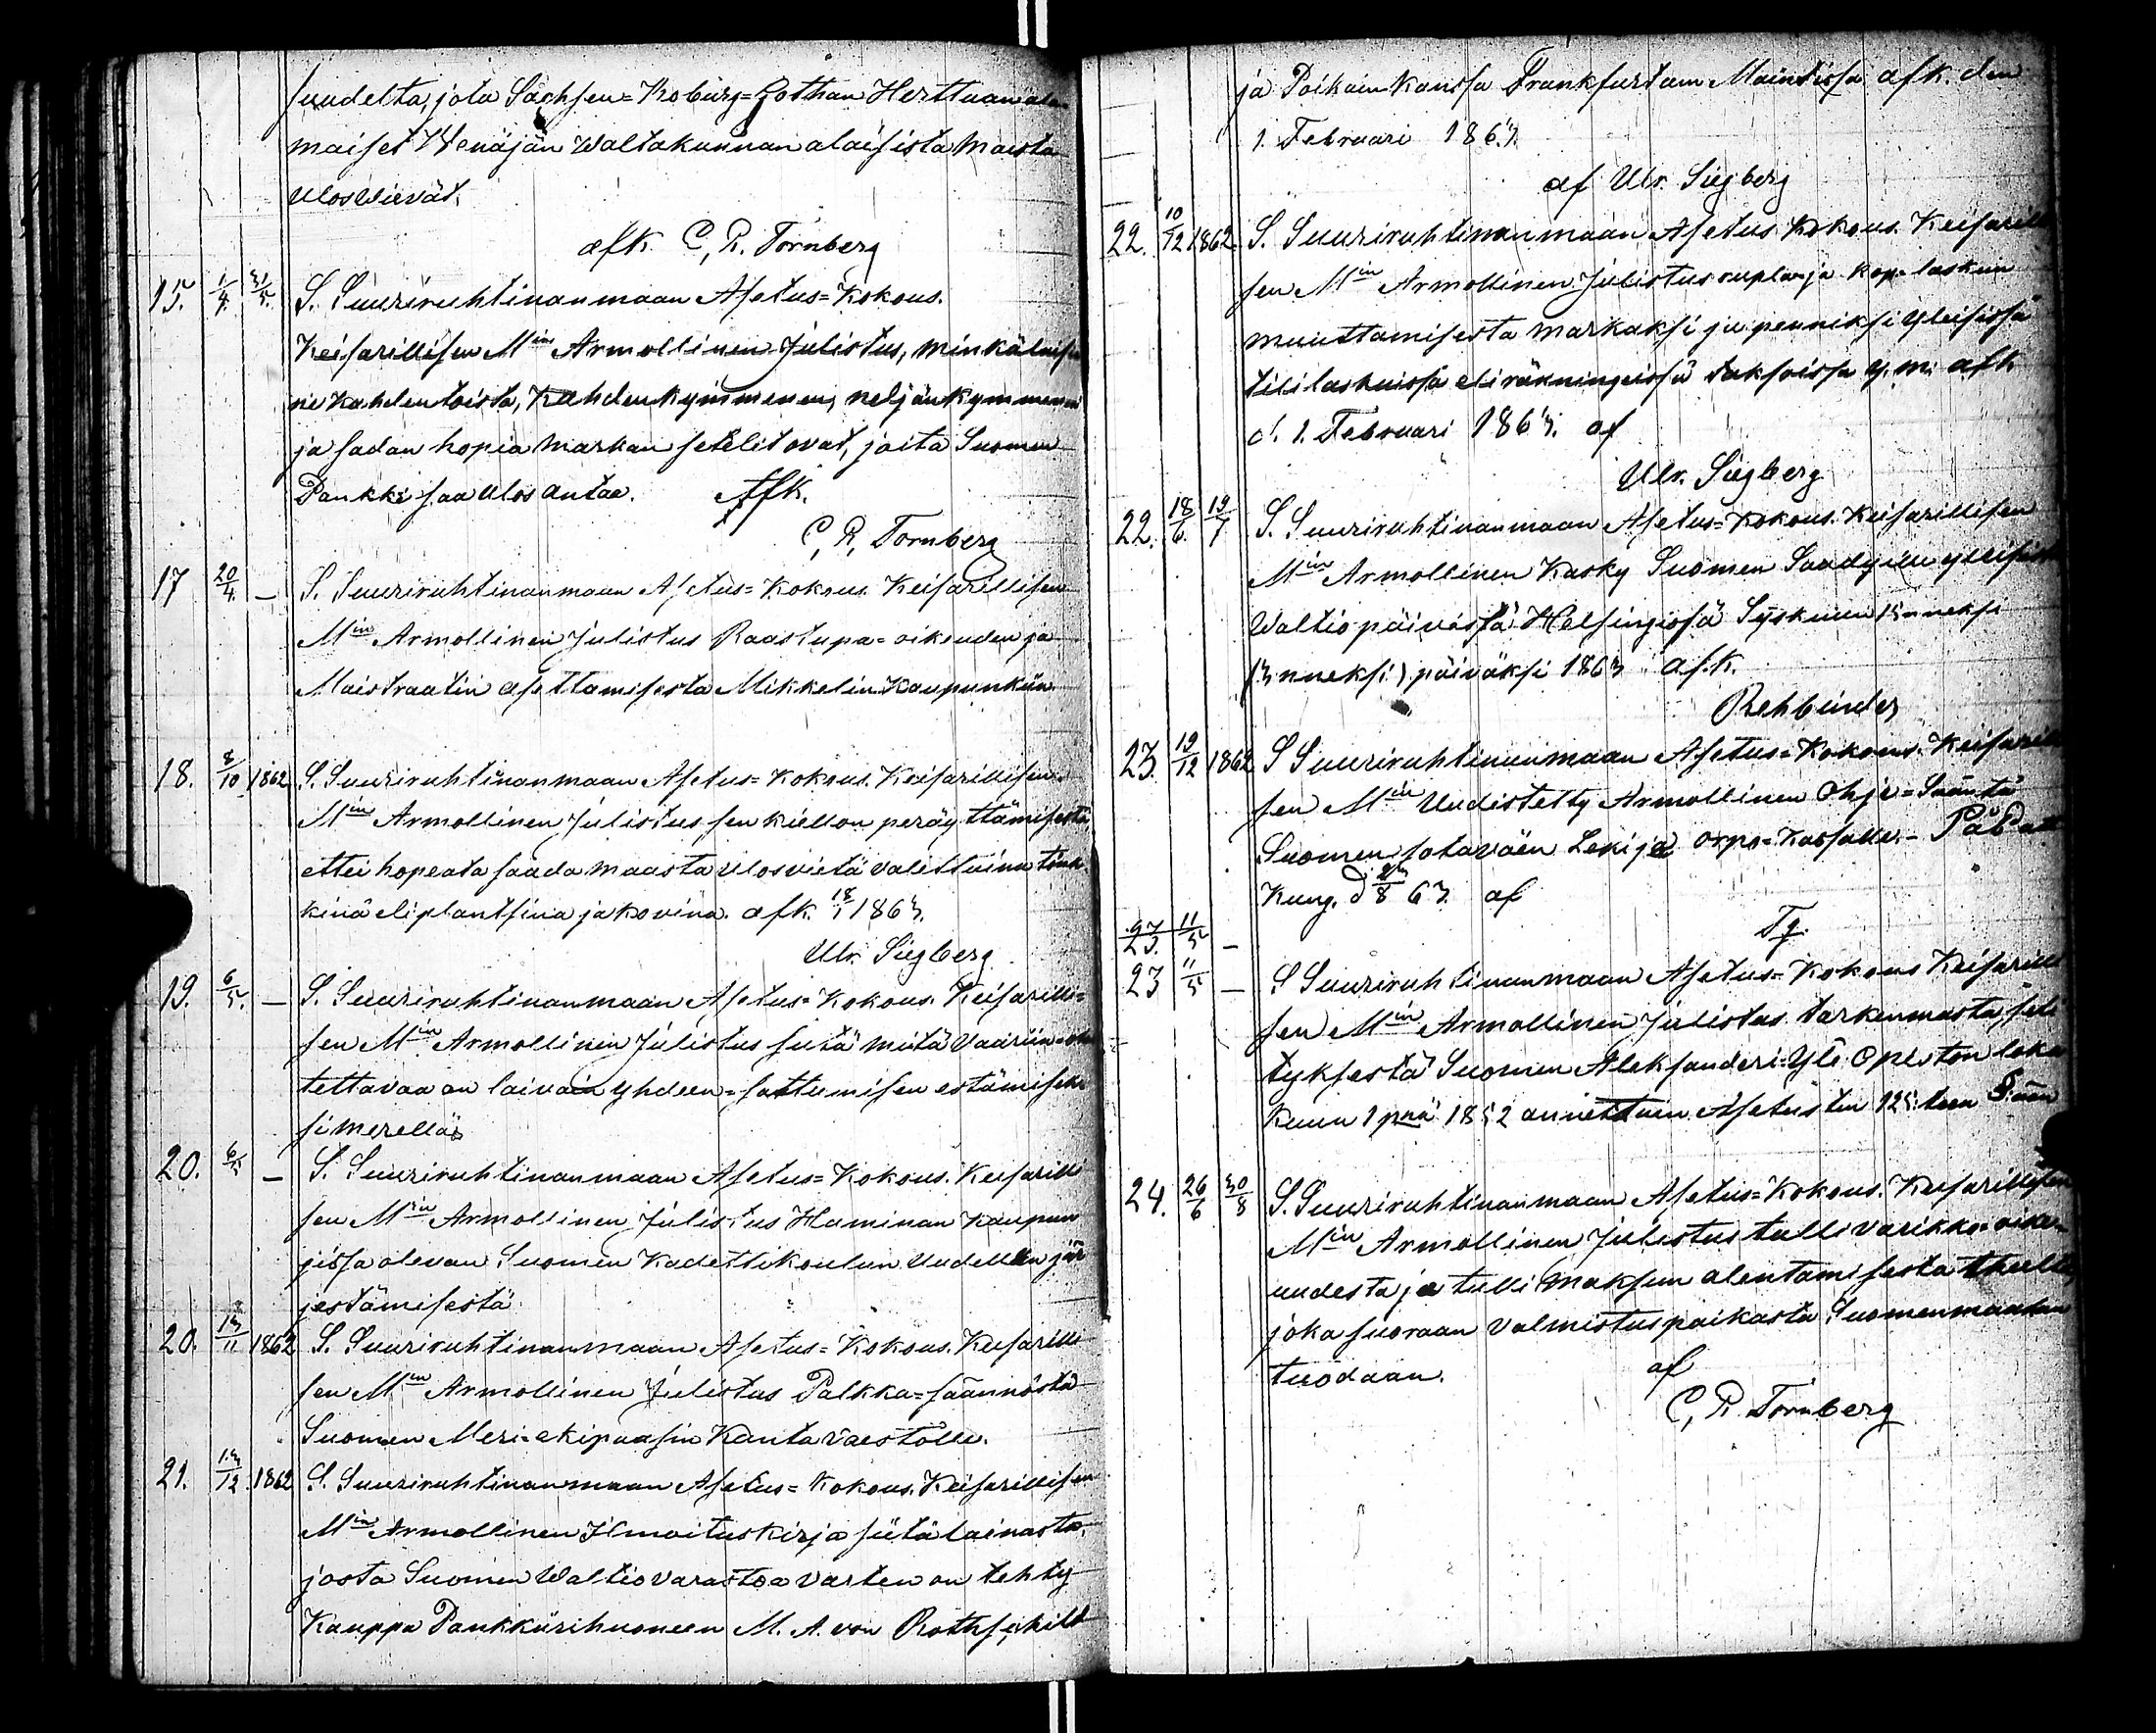 suudelta, jota Sachsen=Koburg=Gothan Herttuan ala
maiset Wenäjän Waltakunnan alaisista maista
Ulos Wievät.
afk C, R. Törnberg
15. 1/4. 31/5. S. Suuriruhtinanmaan Asetus=Kokous.
Keisarillisen Min Armollinen Julistus, minkälaise
ne Kahdentoista, Kahdenkymmenen, neljänkymmenen
ja sadan hopia markan setelit ovat, joita Suomen
Pankki saa ulos antaa. Afk.
C, R, Törnberg
17 20/4. — S. Suuriruhtinanmaan Asetus=Kokous. Keisarillisen
Min Armollinen Julistus Raastupa=oikeuden ja
Maistraatin asettamisesta Mikkelin Kaupunkiin
18. 8/10 1862 S. Suuriruhtinanmaan Asetus=Kokous. Keisarillisen
Min Armollinen Julistus sen kiellon peräyttämisestä,
ettei hopeata saada maasta ulosvietä valettuina tank
kina eli plantsina ja kovina. afk. 18/1 1863.
Ulr. Siegberg
19. 6/5. — S. Suuriruhtinanmaan Asetus=Kokous. Keisarilli=
sen Min Armollinen Julistus siitä mitä Vaariin=ote
tettavaa on laivain yhdeen=sattumisen estämisek
si merellä
20. 6/5 — S. Suuriruhtinanmaan Asetus=Kokous. Keisarilli
sen Min Armollinen Julistus Haminan Kaupun
gissa olevan Suomen Kadettikoulun Uudellen jär
jestämisestä
20. 13/11 1862 S. Suuriruhtinanmaan Asetus=Kokous. Keisarilli
sen Min Armollinen Julistus Palkka=säännöstä
Suomen Meri-ekipaasin Kanta väestölle.
21. 13/12 1862 S. Suuriruhtinanmaan Asetus=Kokous. Keisarillisen
Min Armollinen Ilmoituskirja siitä lainasta,
josta Suomen Waltiovarastoa varten on tehty
Kauppa Pankkiirihuoneen M. A. von Rothschild
ja Poikain Kanssa Frankfurt am Maintissa afk. den
1. Februari 1863.
af Ulr. Siegberg
22. 10/12 1862. S. Suuriruhtinanmaan Asetus Kokous. Keisarilli
sen Min Armollinen Julistus rupla- ja kop= laskun
muuttamisesta markaksi ja penniksi yleisissä
tililaskuissa eli räkningeissä taksoissa y. m. afk
d. 1. Februari 1863. af
Ulr. Siegberg
22. 18/6. 19/7 S. Suuriruhtinanmaan Asetus=Kokous. Keisarillisen
Min Armollinen Kasky Suomen Saadyille yleisistä
Waltiopäivistä Helsingissä Syskuun 15 nneksi
(3 nneksi) päiväksi 1863 afk.
Rehbinder
23. 19/12 1862 S Suuriruhtinanmaan Asetus=Kokous. Keisarilli
sen Min Uudistetty Armollinen Ohje=Sääntö
Suomen sotaväen Leski ja orpo=Kassalle.— På Pat
Kung. d 8 63. af
Tg.
23. 11/5 —
23 11/5 — S Suuriruhtinanmaan Asetus=Kokous Keisarilli
sen Min Armollinen Julistus tarkemmasta seli
tyksestä Suomen Aleksanderi=Yli Opiston loka
kuun 1 pnä 1852 annettuun Asetusten 125:teen §:ään
24. 26/6 30/8 S. Suuriruhtinanmaan Asetus=Kokous. Keisarillisen
Min Armollinen Julistus tulli varikko=oike=
uudesta ja tulli maksun alentamisesta theelle,
joka suoraan valmistuspaikasta Suomenmaahan
tuodaan. af
C, R. Törnberg